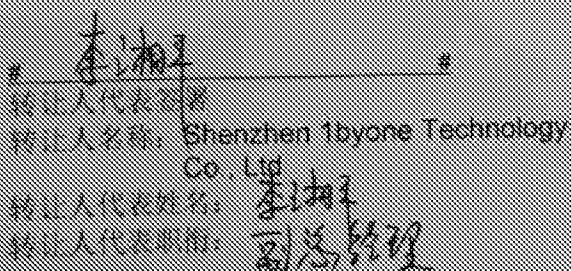 李湘平
# #
转让人代表签署
转让人名称: Shenzhen 1byone Technology
Co., Ltd
转让人代表姓名: 李湘平
转让人代表职衔: 副总经理